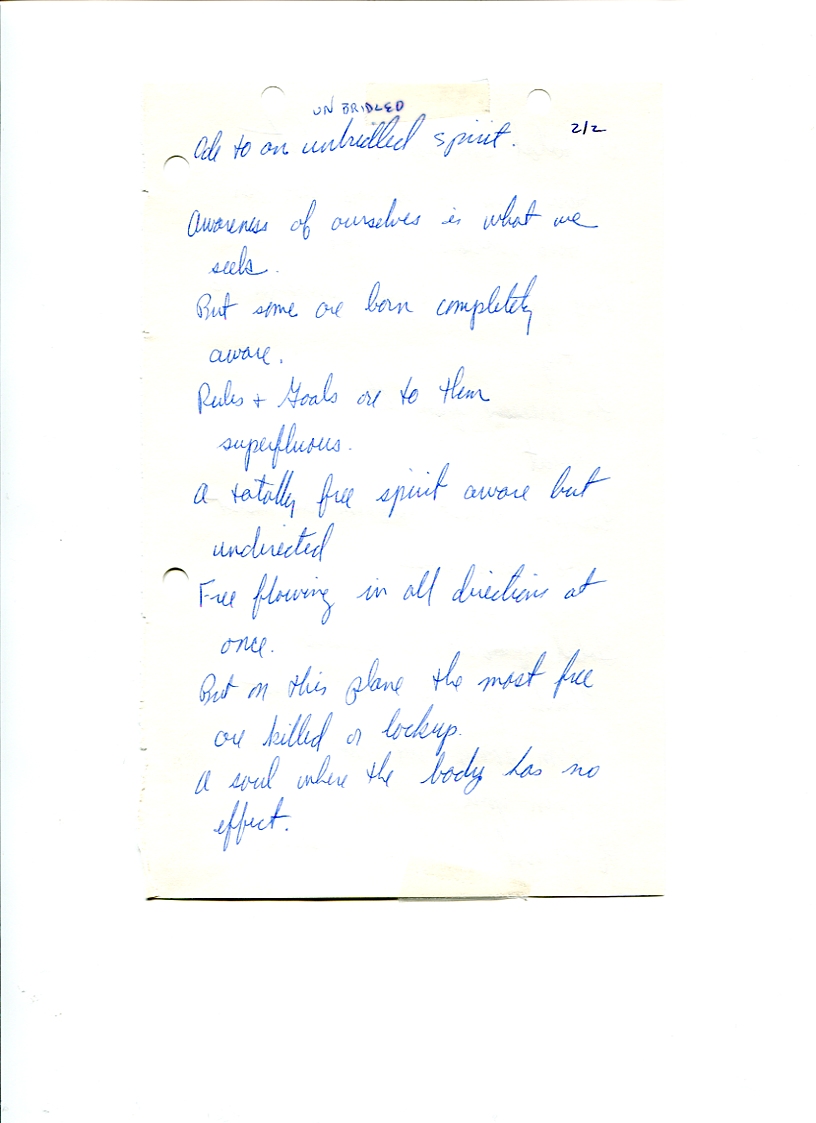 UNBRIDLED
Ode to an unbridled spirit. 2/2
Awareness of ourselves is what we
seek.
But some are born completely
aware.
Rules + Goals are to them
superfluous.
A totally free spirit aware but
undirected
Free flowing in all directions at
once.
But on this plane the most free
are killed or lockup.
A soul where the body has no
effect.